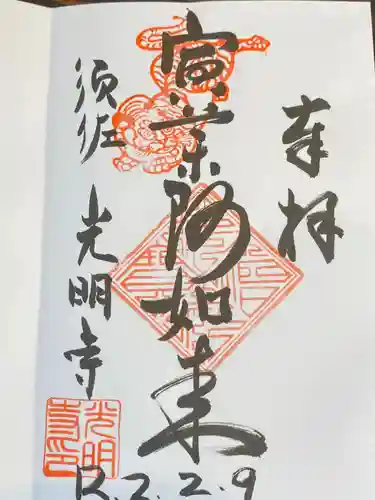 奉拝
寅薬師如来
須佐 光明寺
光明
寺印
R.2.2.9